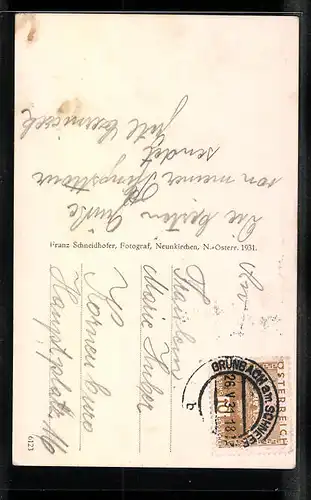 Die besten Grüße
von meiner Pfingsttour
sendet
Franz Schneidhofer, Fotograf, Neunkirchen, N.-Österr. 1931.
Fräulein
Marie Huber
in
Korneuburg
Hauptplatz
6223
GRÜNBACH am SCHNEEB
26.V.31
b
ÖSTERREICH
10